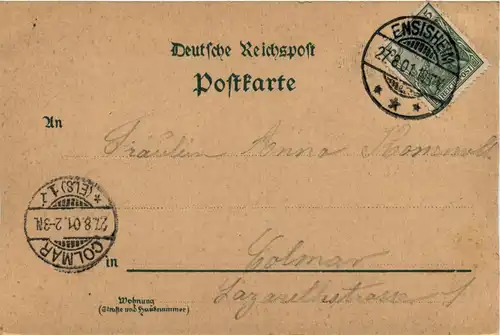 Deutsche Reichspost
Postkarte
ENSISHEIM
27.8.01
REICHSPOST
An
Fräulein Anna
COLMAR
27.8.01. 2-3N.
* (ELS) 1
in Colmar
Wohnung
(Straße und Hausnummer)
Lazarethstrasse